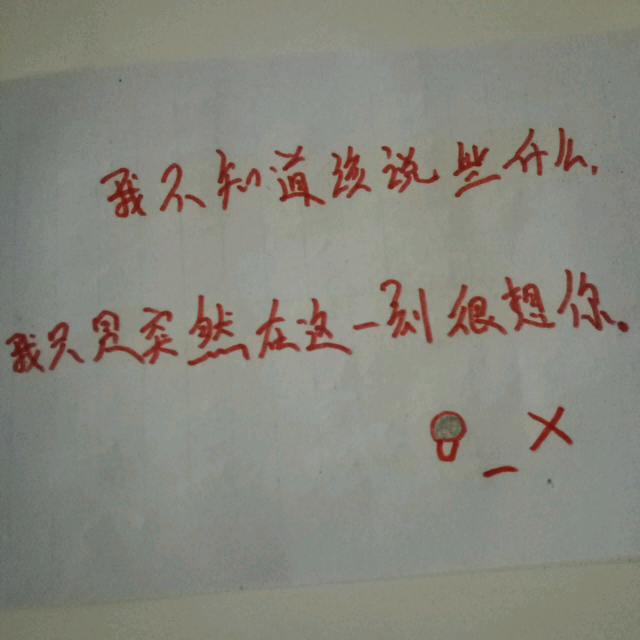 我不知道该说些什么,
我只是突然在这一刻很想你。